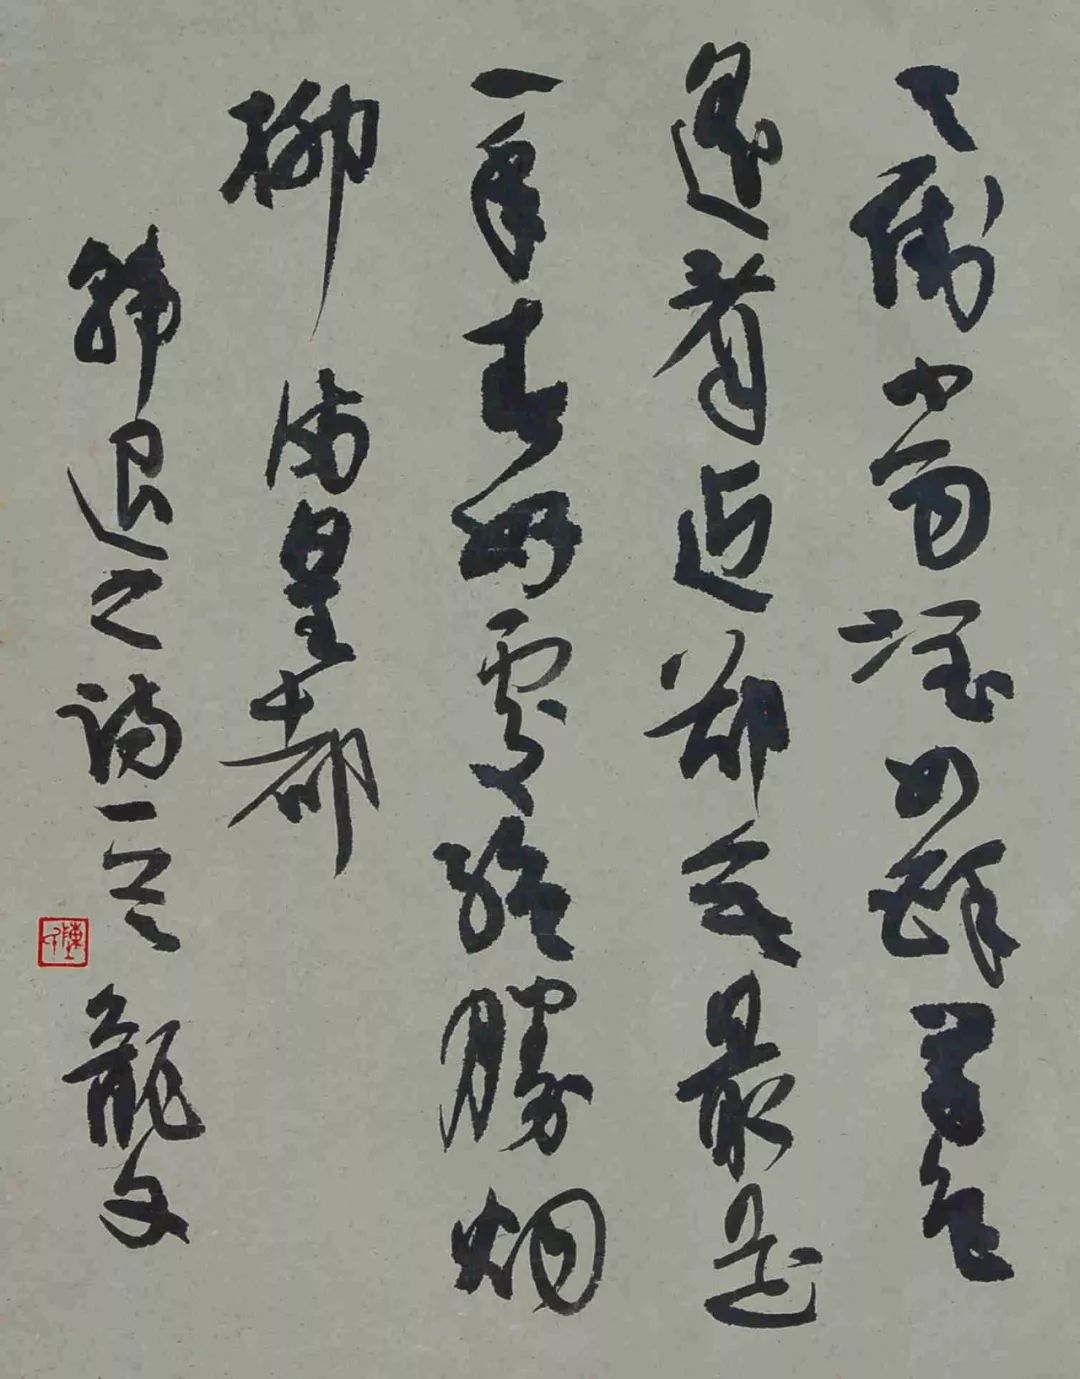 天街小雨潤如酥草色
遙看近却無最是
一年春好處絕勝烟
柳滿皇都
韓退之詩一首 龍
陳